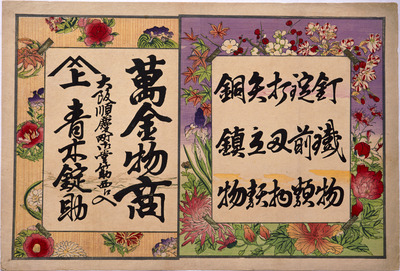 釘鐵物
錠前類
打刃物
矢立類
銅鎮物
萬金物商
大阪順慶町堂筋西へ入
上 青木錠助